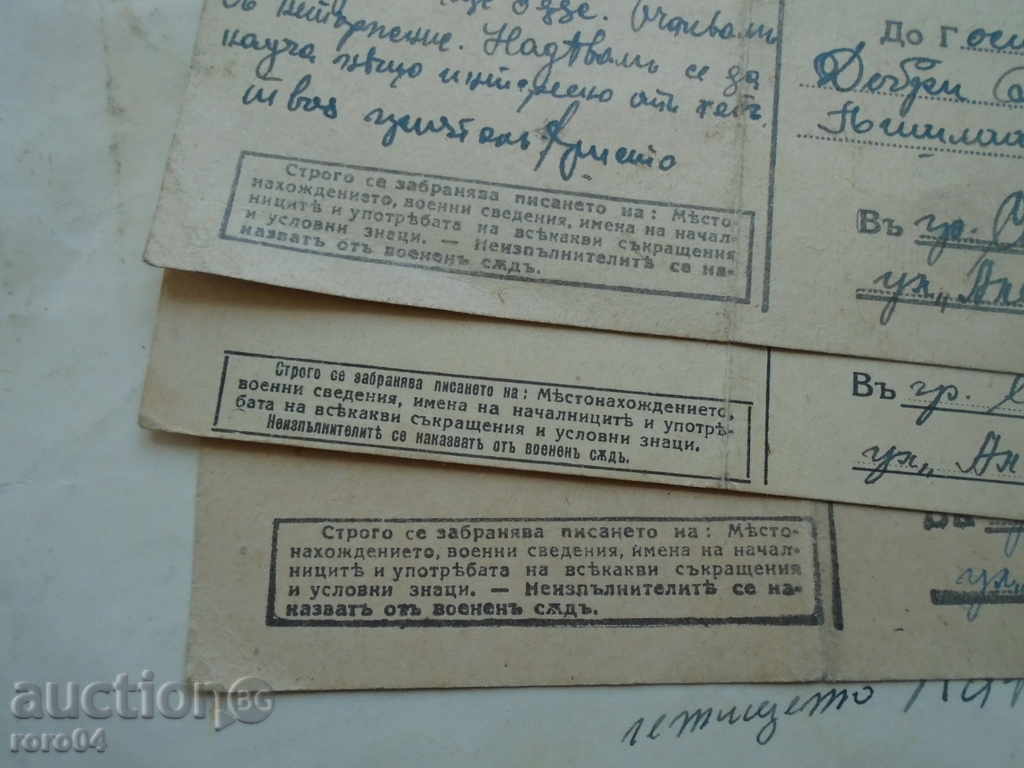 съ нетърпение. Надѣвамъ се да
науча нѣщо интересно отъ тебъ.
твоя приятель Христо
До Госп
Добри
Строго се забранява писането на: Мѣсто-
нахождението, военни сведения, имена на начал-
ницитѣ и употрѣбата на всѣкакви съкращения
и условни знаци. — Неизпълнителитѣ се на-
казватъ отъ воененъ сѫдъ.
Въ гр.
ул. „Ан
Строго се забранява писането на: Мѣстонахождението,
военни сведения, имена на началницитѣ и употрѣ-
бата на всѣкакви съкращения и условни знаци.
Неизпълнителитѣ се наказватъ отъ воененъ сѫдъ.
Въ гр.
ул. „Ан
Строго се забранява писането на: Мѣсто-
нахождението, военни сведения, имена на начал-
ницитѣ и употрѣбата на всѣкакви съкращения
и условни знаци. — Неизпълнителитѣ се на-
казватъ отъ воененъ сѫдъ.
Въ
ул. „
летището
auction BG
roro04